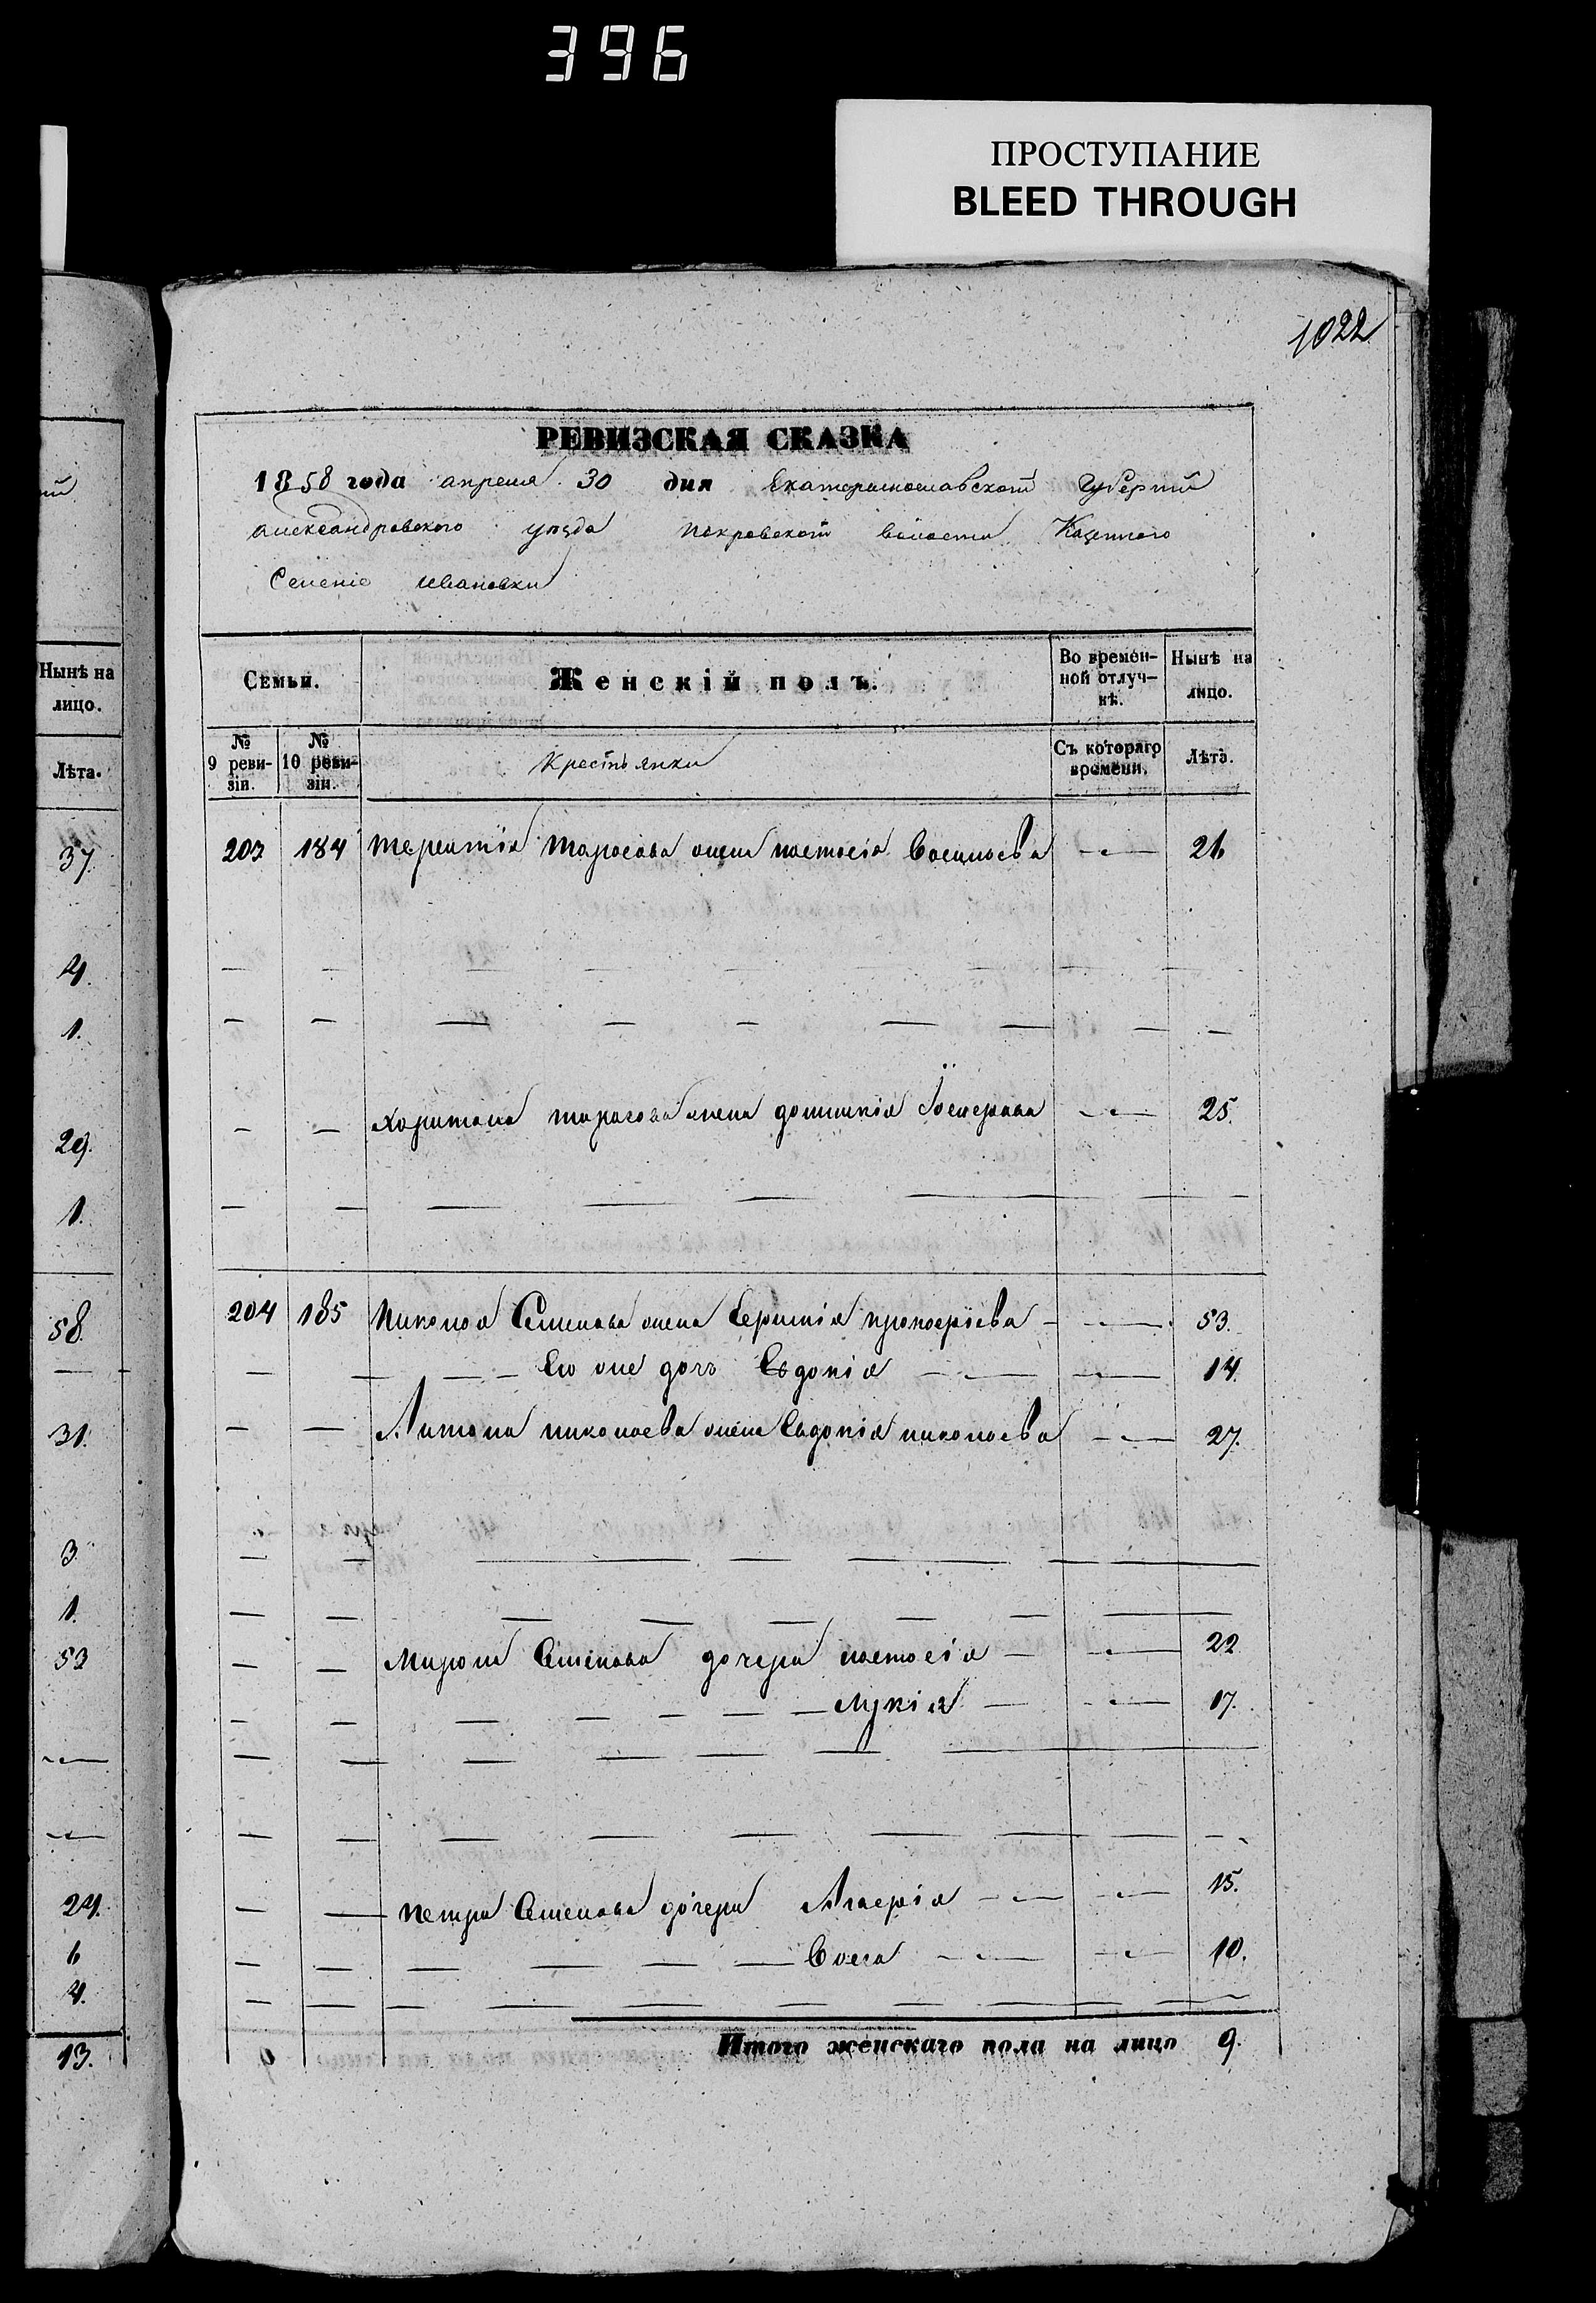 396
ПРОСТУПАНИЕ
BLEED THROUGH
1022
РЕВИЗСКАЯ СКАЗКА
1858 года апреля 30 дня Екатеринославской Губерніи
александровского уезда покровской волости Казенного
Селеніе Ивановки
Нынѣ на лицо.
Лѣта.
37.
4.
1.
29.
1.
58.
31.
3
1.
53
24.
6
4.
13.
Семьи.
Женскій полъ.
Во времен-
ной отлуч-
кѣ.
Нынѣ на
лицо.
№ 9 реви-
зіи.
№ 10 реви-
зіи.
Крестьянки
Съ котораго
времени.
Лѣта.
203 184 терентія тарасова жена настасія Васильева 26
— — — — — — — —
— — — — — — — — —
— — Харитона тарасова жена 25.
— — — — — — —
204 185 николая Семенова жена 53.
— — — — Ею же дочь Евдокія — — 14.
— — Антона николаева жена Евдокія николаева 27.
— — — — — — —
— — — — — — — —
— — Мирона Семенова дочери настасія — 22
— — — — — — — Лукія — 17.
— — — — — — —
— — — — — — — — —
— — петра Семенова дочери — 15.
— — — — — — — 10.
— — — — — — — — —
Итого женскаго пола на лицо 9.